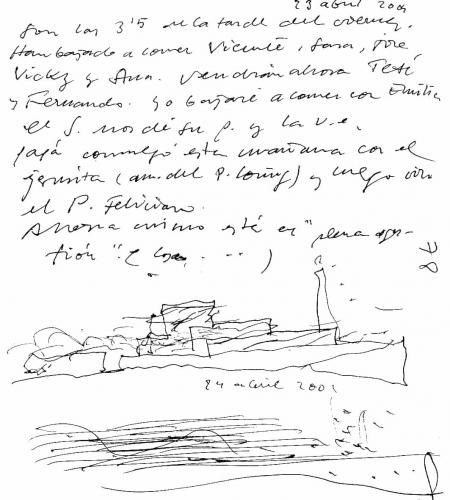 23 abril 200
Son las 3'5 de la tarde del viernes.
Han bajado a comer Vicente, Sara, José,
Vicky y Ana. Vendrán ahora Teté
y Fernando. Yo bajaré a comer con Emilia
el S. nos dé su p. y la v. e.
Papá comulgó esta mañana con el
jesuita (am. del P.) y luego vino
el P. Feliciano.
Ahora mismo está en "plena
78
24 abril 200